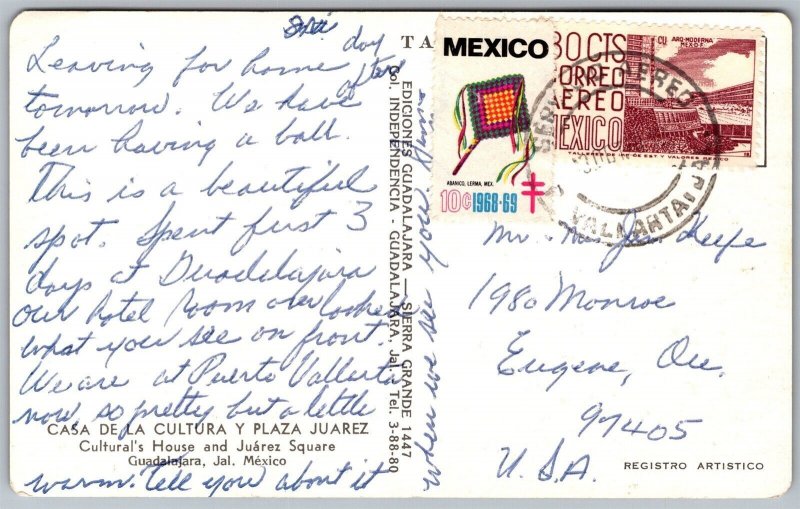 day
Leaving for home after
tomorrow. We have
been having a ball.
This is a beautiful
spot. Spent first 3
days at Guadalajara
Our hotel room overlooked
what you see on front.
We are at Puerto Vallarta
now, so pretty but a little
warm. Tell you about it
when we see you.
CASA DE LA CULTURA Y PLAZA JUAREZ
Cultural's House and Juárez Square
Guadalajara, Jal. México
EDICIONES GUADALAJARA — SIERRA GRANDE 1447
Col. INDEPENDENCIA - GUADALAJARA, Jal. Tel. 3-88-80
TA
MEXICO
ABANICO, LERMA, MEX.
10¢ 1968-69
80 CTS
CORREO
AEREO
MEXICO
ARQ. MODERNA
MEX. D.F.
AEREO
VALLARTA
Mr. Keefe
1980 Monroe
Eugene, Ore.
97405
U.S.A.
REGISTRO ARTISTICO